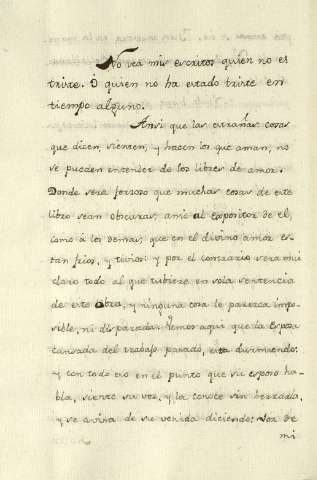 No vea mis escritos quien no es
triste. O quien no ha estado triste en
tiempo alguno.
Ansi que las estrañas cosas
que dicen, sienten, y hacen los que aman, no
se pueden entender de los libres de amor.
Donde sera forsoso que muchas cosas de este
libro sean obscuras, ansi al expositor de el,
como à los demas, que en el divino amor es-
tan frios, y tivios: y por el contrario vera mui
claro todo al que tubiere en sola sentencia
de esto obra, y ninguna cosa le paresca impo-
sible, ni disparada. Vemos aqui que la Esposa
cansada del trabajo pasado, esta durmiendo:
y con todo eso en el punto que su esposo ha-
bla, siente su voz, y la conoce sin herrarla,
y se aviva de su venida diciendo: Voz de
mi